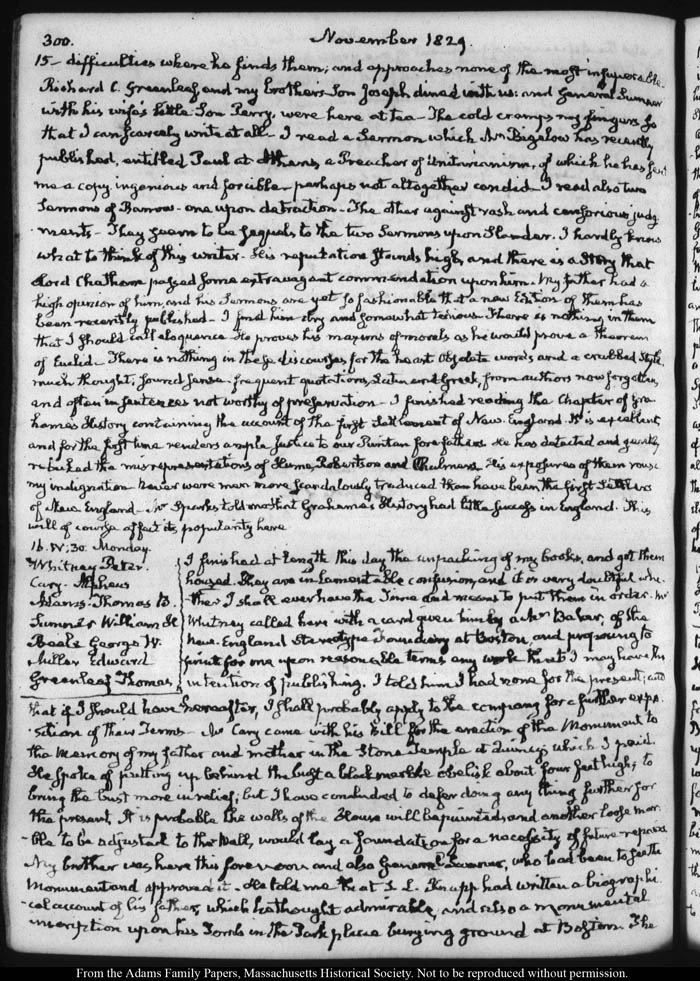 300.
November 1829.
15— difficulties where he finds them; and approaches none of the most insuperable.
Richard C. Greenleaf, and my brothers Son Joseph dined with us: and General Sumner
with his wife's little Son Perry, were here at tea— The cold cramps my fingers so
that I can scarcely write at all— I read a Sermon which Mr Bigalow has recently
published, entitled Paul at Athens, a Preacher of Unitarianism, of which he has sent
me a copy ingenious and forcible— perhaps not altogether candid— I read also two
Sermons of Barrow— one upon detraction— The other against rash and censorious judg
ments— They seem to be sequels to the two Sermons upon Slander. I hardly know
what to think of this writer— His reputation stands high, and there is a story that
Lord Chatham passed some extravagant commendation upon him. My father had a
high opinion of him, and his Sermons are yet so fashionable that a new Edition of them has
been recently published— I find him dry and somewhat tedious. There is nothing in them
that I should call eloquence He proves his maxims of morals as he would prove a Theorem
of Euclid— There is nothing in these discourses for the heart Obsolete words and a crabbed style,
much thought, sound sense— frequent quotations, Latin and Greek, from authors now forgotten,
and often in sentences not worthy of preservation— I finished reading the Chapter of Gra
hame's History containing the account of the first settlement of New-England. It is excellent
and for the first time renders ample Justice to our Puritan forefathers He has detected and gently
rebuked the misrepresentations of Hume, Robertson and Chalmers. His exposures of them rouse
my indignation never were men more scandalously traduced than have been the first Settlers
of New England— Mr Sparks told me that Grahame's History had little success in England. This
will of course affect its popularity here.
16. IV: 30. Monday.
Whitney Peter.
Cary. Alpheus
Adams. Thomas B.
Sumner William H
Beale George W.
Miller Edward
Greenleaf Thomas
I finished at length this day the unpacking of my books, and got them
housed. They are in lamentable confusion, and it is very doubtful whe-
ther I shall ever have the Time and means to put them in order. Mr
Whitney called here with a card given him by a Mr Baker, of the
New-England Stereotype Foundery at Boston, and proposing to
print for me upon reasonable terms any work that I may have the
intention of publishing. I told him I had none for the present; and
that if I should have hereafter, I shall probably apply to the company for a further expo
sition of their Terms— Mr Cary came with his Bill for the erection of the Monument to
the Memory of my father and mother in the Stone Temple at Quincy, which I paid.
He spoke of putting up behind the bust a black marble obelisk about four feet high, to
bring the bust more in relief; but I have concluded to defer doing any thing further for
the present. It is probable the walls of the House will be painted, and another loose mar-
ble to be adjusted to the Wall, would lay a foundation for a necessity of future repairs.
My brother was here this forenoon and also General Sumner, who had been to see the
Monument and approved it— He told me that S. L. Knapp had written a biographi-
cal account of his father, which he thought admirable, and also a monumental
inscription upon his Tomb in the Park place burying ground at Boston. The
From the Adams Family Papers, Massachusetts Historical Society. Not to be reproduced without permission.